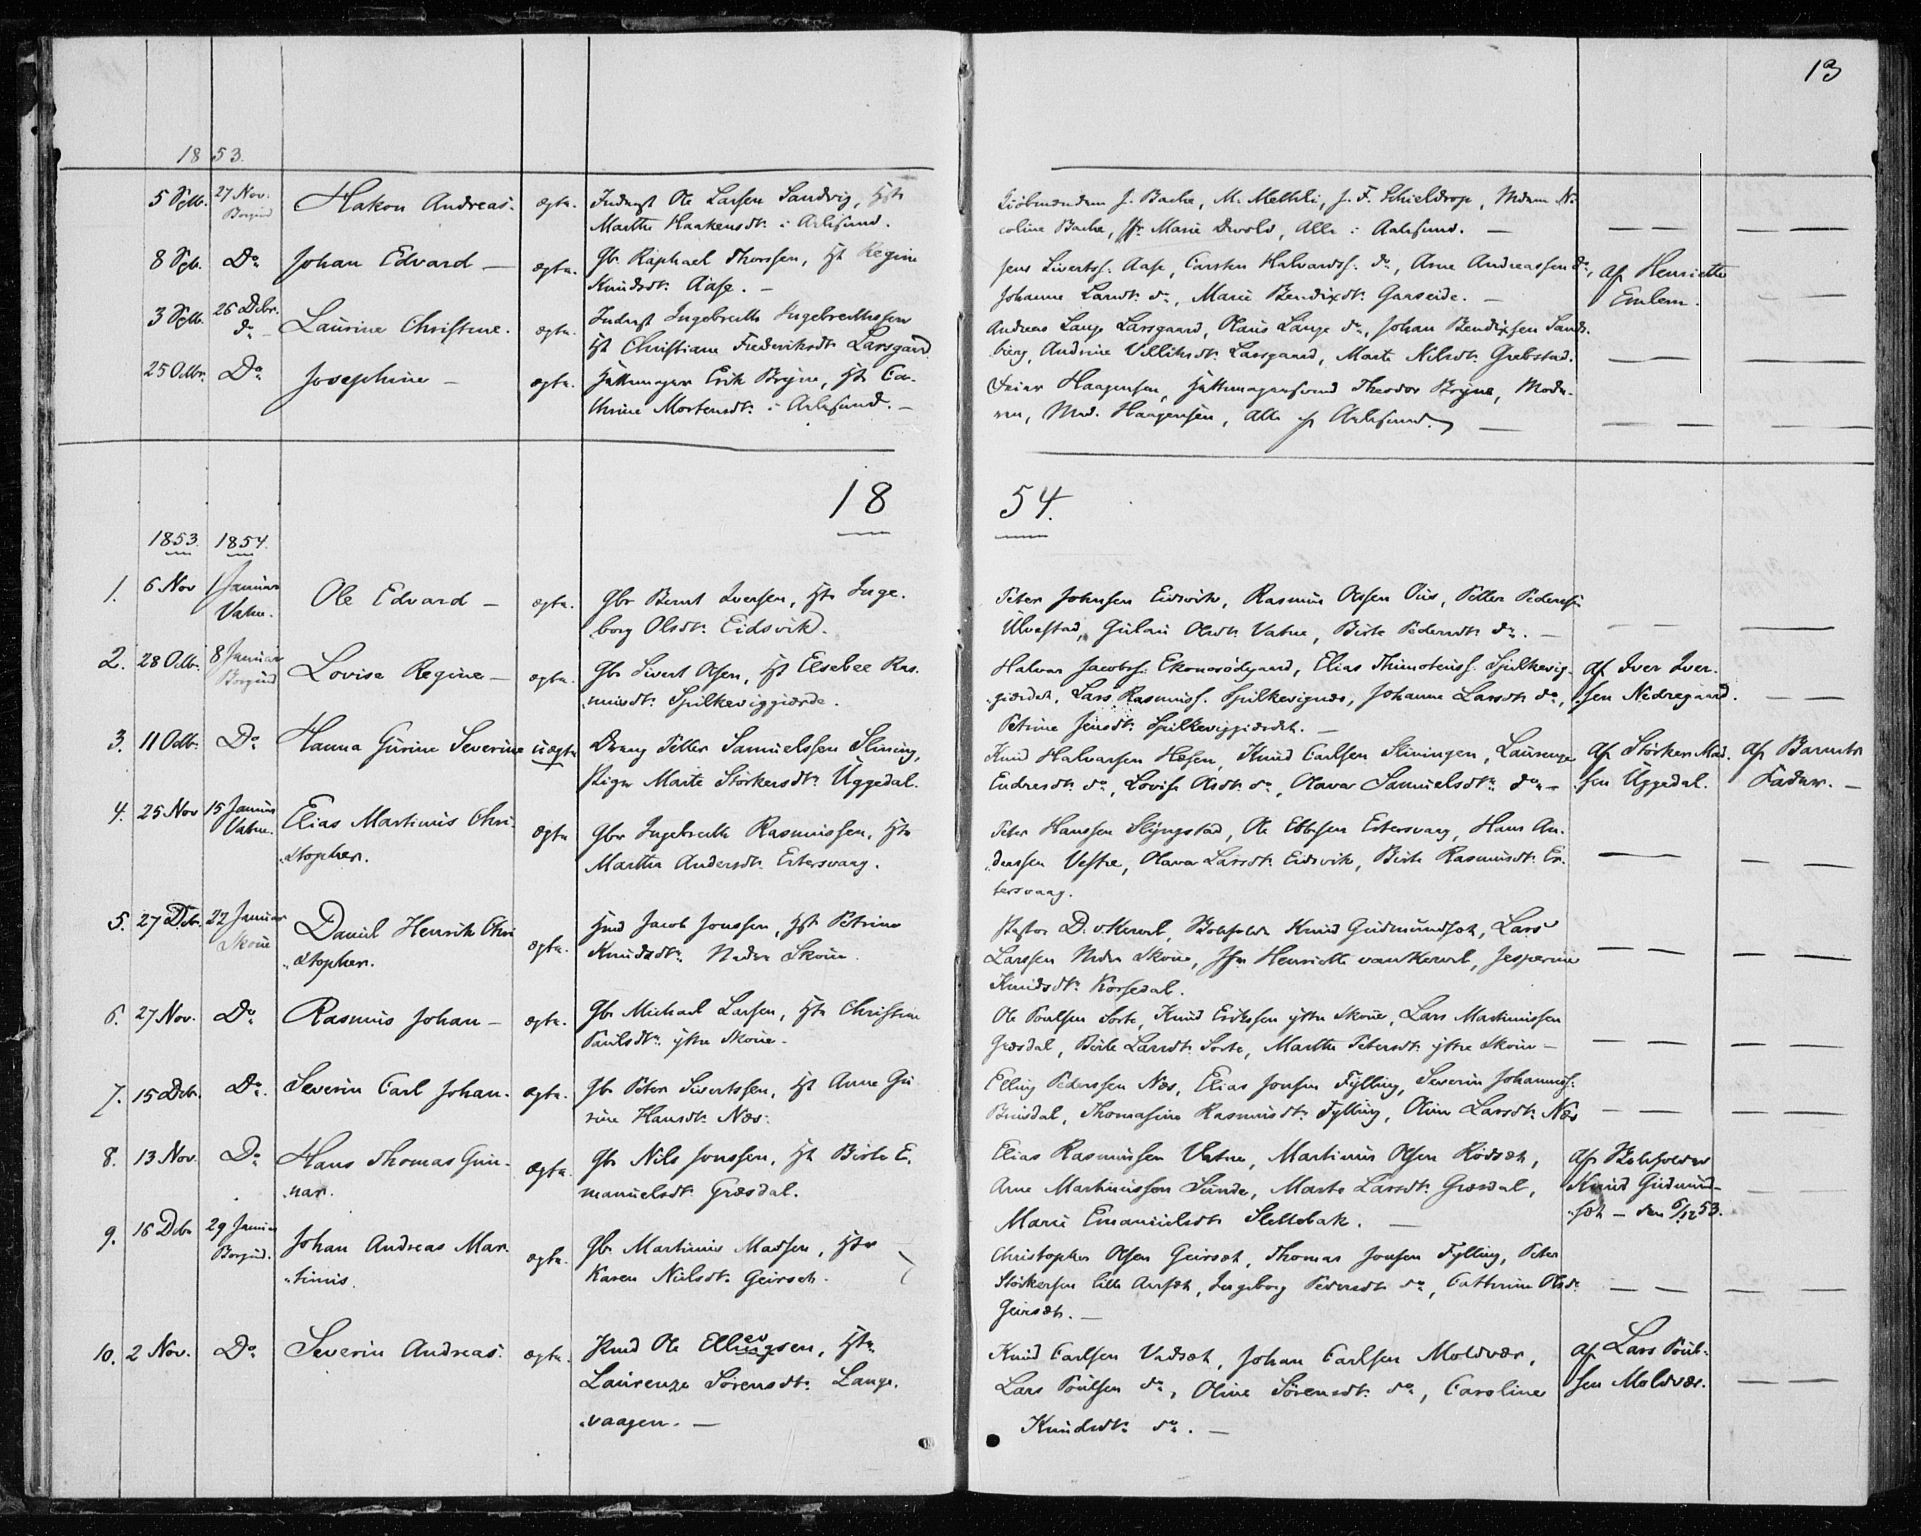 13
1853.
5 Sptb. 27 Nov. Borgund Hakon Andreas. ægte. Indergst Ole Larsen Sandvig, Hst
Marthe Haakensdtr. i Aalesund.
Kiöbmændene J. Bache, M. Methli, J. F. Schieldrop, Mdm Ni-
coline Bache, Jfr. Marie Dwold, Alle i Aalesund. —
8 Spb. Do Johan Edvard — ægte. Gbr. Raphael Thorssen, Hst Regine
Knudsdtr. Aase. —
Jens Sivertss. Aase, Carsten Halvardss. do, Arne Andreassen do,
Johanne Larsdtr. do, Marie Bendixdtr. Gaaseide. —
af Henriette
Emlem.
3 Sptb. 26 Debr. do Laurine Christine. ægte. Indergst Ingebreth Ingebrethssen
Hst Christiane Frederiksdtr. Larsgaard.
Andreas Lange Larsgaard, Olaus Lange do, Johan Bendixsen Sand-
bierg, Andrine Villiksdtr. Larsgaard, Marte Nilsdtr. Grebstad.
25 Octbr. Do Josephine — ægte. Hattemager Erik Bryne, Hst Ca-
thrine Mortensdtr. i Aalesund. —
Haagensen, Hattemagersvend Theodor Bryne, Mode-
ren, Mad. Haagensen, Alle af Aalesund. —
18 54.
1853. 1854.
1. 6 Nov 1 Januar Vatne. Ole Edvard — ægte. Gbr Bernt Iversen, Hst Inge-
borg Olsdtr. Eidsvik.
Peter Johnsen Eidsvik, Rasmus Olsen Ous, Petter Peders.
Ulvestad, Gulau Olsdtr. Vatne, Birte Pedersdtr. do. —
2. 28 Octbr. 8 Januar Borgund Lovise Regine — ægte. Gbr Sivert Olsen, Hst Elsebee Ras-
musdtr. Spilkeviggjærde.
Halvor Jacobss. Ekonesödgaard, Elias Thimoteuss. Spilkevig-
gjærdet, Lars Rasmuss. Spilkevignæs, Johanne Larsdtr. do,
Petrine Jensdtr. Spilkeviggjærdet. —
af Iver Iver-
sen Nedregaard.
3. 11 Octbr. Do Hanna Gurine Severine uægte Dreng Petter Samuelssen Slining,
Pige Marte Störkersdtr. Uggedal.
Knud Halvorsen Hesen, Knud Carlsen Sliningen, Laurenze
Endresdtr. do, Lovise Olsdtr. do, Olava Samuelsdtr. do —
af Störker Mad-
sen Uggedal.
af Barnets
Fader. —
4. 25 Nov 15 Januar Vatne. Elias Martinus Chri-
stopher. ægte Gbr Ingebreth Rasmussen, Hst
Marthe Andersdtr. Estersvaag.
Peter Hanssen Slyngstad, Ole Ebbesen Estersvaag, Hans An-
derssen Vestre, Olava Larsdtr. Eidsvik, Birte Rasmusdtr. Es-
tersvaag.
5. 27 Debr. 22 Januar Skoue Daniel Henrik Chri
stopher. ægte. Hmd Jacob Jonssen, Hst Petrine
Knudsdtr. Nedre Skoue.
Pastor D. v Kervel, Kirkesgr. Knud Gudmundset, Lars
Larssen Nedre Skoue, Jfr. Henriette van Kervel, Jesperine
Knudsdtr. Korsedal.
6. 27 Nov. Do Rasmus Johan — ægte. Gbr Michael Larsen, Hst Christine
Paulsdtr. ytre Skoue.
Ole Poulsen Sorte, Knud Erikssen ytre Skoue, Lars Martinussen
Græsdal, Berte Larsdtr. Sorte, Marthe Petersdtr. ytre Skoue —
7. 15 Debr. Do. Severin Carl Johan. ægte. Gbr. Peter Sivertssen, Hst Anne Gu-
rine Hansdtr. Næs.
Elling Pederssen Næs, Elias Jonsen Fylling, Severin Johanness.
Brusdal, Thomasine Rasmusdtr. Fylling, Oline Larsdtr. Næs
8. 13 Nov. Do Hans Thomas Gun-
nar. ægte. Gbr Nils Jonssen, Hst Birte E-
manuelsdtr. Græsdal.
Elias Rasmussen Vatne, Martinus Olsen Rödset,
Arne Martinussen Sunde, Marte Larsdtr. Græsdal,
Marie Emanuelsdtr. Slettebak. —
af
Knud Gudmund-
set — den 6/12 53.
9. 16 Debr 29 Januar Borgund. Johan Andreas Mar-
tinus. ægte. Gbr. Martinus Madsen, Hst
Karen Nielsdtr. Geirset.
Christopher Olsen Geirset, Thomas Jonsen Fylling, Peter
Störkersen lille Aarset, Ingeborg Pedersdtr. do, Cathrine Olsdtr
Geirset. —
10. 2 Nov. Do Severin Andreas. ægte. Hmd Ole Ellingsen, Hst.
Laurenze Sörensdtr. Lange-
vaagen. —
Knud Carlsen Vadset, Johan Carlsen Moldvær,
Lars Poulsen do, Oline Sörensdtr. do, Caroline
Knudsdtr. do. —
af Lars Poul-
sen Moldvær.